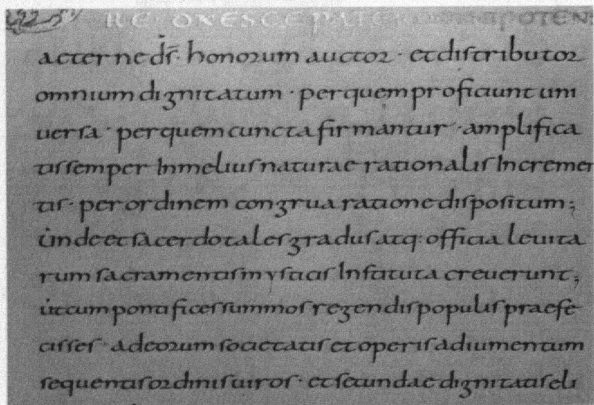 acterne dś honorum auctor · et distributor
omnium dignitatum · per quem proficiunt uni
uersa · per quem cuncta firmantur · amplifica
tis semper Inmelius naturae rationalis Incremen
tis · per ordinem congrua ratione dispositum ;
unde et sacerdotales gradus atq· officia leuita
rum sacramentis mysticis Instituta creuerunt ;
ut cum pontifices summos regendis populis praefe
cisses · ad eorum societatis et operis adiumentum
sequentis ordinis uiros · et secundae dignitatis eli